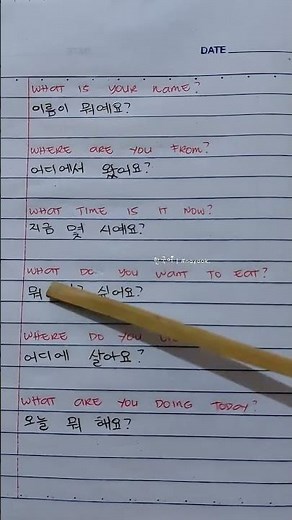 DATE
WHAT IS YOUR NAME?
이름이 뭐예요?
WHERE ARE YOU FROM?
어디에서 왔어요?
WHAT TIME IS IT NOW?
지금 몇 시예요?
WHAT DO YOU WANT TO EAT?
뭐 싶어요?
WHERE DO YOU
어디에 살아요?
WHAT ARE YOU DOING TODAY?
오늘 뭐 해요?